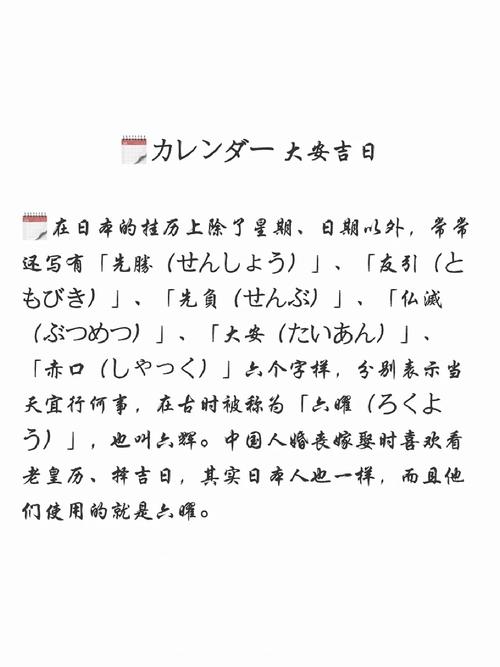 カレンダー 大安吉日
在日本的挂历上除了星期、日期以外，常常
还写有「先勝（せんしょう）」、「友引（と
もびき）」、「先負（せんぶ）」、「仏滅
（ぶつめつ）」、「大安（たいあん）」、
「赤口（しゃっく）」六个字样，分别表示当
天宜行何事，在古时被称为「六曜（ろくよ
う）」，也叫六辉。中国人婚丧嫁娶时喜欢看
老皇历、择吉日，其实日本人也一样，而且他
们使用的就是六曜。